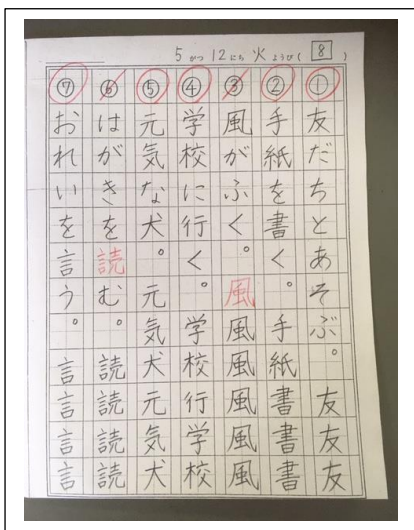 5がつ12にち火ようび(8)
①友だちとあそぶ。友友友
②手紙を書く。手紙書書書
③風がふく。風風風風風
④学校に行く。学校行学校
⑤元気な犬。元気犬元気犬
⑥はがきを読む。読読読読
⑦おれいを言う。言言言言